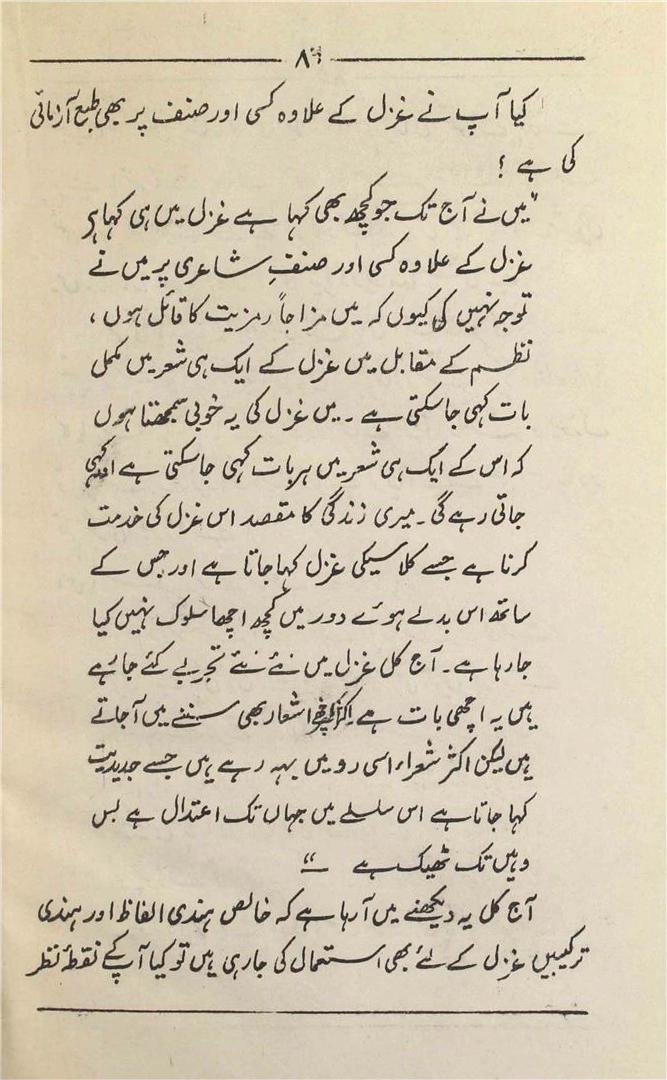 کیا آپ نے غزل کے علاوہ کسی اور صنف پر بھی طبع آزمائی
کی ہے ؟
”میں نے آج تک جو کچھ بھی کہا ہے غزل میں ہی کہا ہے
غزل کے علاوہ کسی اور صنفِ شاعری پر میں نے
توجہ نہیں کی کیوں کہ میں مزاجاً رمزیت کا قائل ہوں ،
نظم کے مقابل میں غزل کے ایک ہی شعر میں مکمل
بات کہی جا سکتی ہے ۔ میں غزل کی یہ خوبی سمجھتا ہوں
کہ اس کے ایک ہی شعر میں ہر بات کہی جا سکتی ہے اور کہی
جاتی رہے گی ۔ میری زندگی کا مقصد اس غزل کی خدمت
کرنا ہے جسے کلاسیکی غزل کہا جاتا ہے اور جس کے
ساتھ اس بدلے ہوئے دور میں کچھ اچھا سلوک نہیں کیا
جا رہا ہے ۔ آج کل غزل میں نئے نئے تجربے کئے جا رہے
ہیں یہ اچھی بات ہے اشعار بھی سننے میں آجاتے
ہیں لیکن اکثر شعراء اسی رو میں بہہ رہے ہیں جسے جدیدیت
کہا جاتا ہے اس سلسلے میں جہاں تک اعتدال ہے بس
وہیں تک ٹھیک ہے ۔“
آج کل یہ دیکھنے میں آرہا ہے کہ خالص ہندی الفاظ اور ہندی
ترکیبیں غزل کے لئے بھی استعمال کی جارہی ہیں تو کیا آپ کے نقطۂ نظر